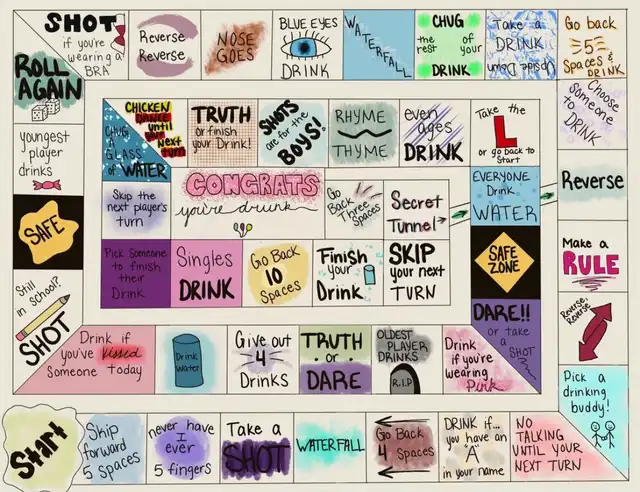 SHOT
if you're
wearing a
BRA
Reverse
Reverse
NOSE
GOES
BLUE EYES
DRINK
WATERFALL
CHUG
the of
rest your
DRINK
Take a
DRINK
Upside Down
Go back
5
Spaces &
DRINK
ROLL
AGAIN
CHUG
GLASS
of
WATER
CHICKEN
DANCE
until
your
next
turn
TRUTH
or finish
your Drink!
SHOTS
are for the
BOYS!
RHYME
THYME
even
ages
DRINK
Take the
L
or go back to
Start
Choose
someone
to
DRINK
youngest
player
drinks
Skip the
next player's
turn
CONGRATS
you're drunk
Go
Back
Three
Spaces
Secret
Tunnel
EVERYONE
Drink
WATER
Reverse
SAFE
Pick Someone
to finish
their
Drink
Singles
DRINK
Go Back
10
Spaces
Finish
your
Drink
SKIP
your next
TURN
SAFE
ZONE
Make a
RULE
Still
in school?
SHOT
DARE!!
or take
a
SHOT
Reverse,
Reverse
Drink if
you've kissed
Someone today
Drink
Water
Give out
4
Drinks
TRUTH
or
DARE
OLDEST
PLAYER
DRINKS
R.I.P
Drink
if you're
wearing
Pink
Pick a
drinking
buddy!
Start
Skip
forward
5 Spaces
never have
I
ever
5 fingers
Take a
SHOT
WATERFALL
Go Back
4
Spaces
DRINK if...
you have an
"A"
in your name
NO
TALKING
UNTIL YOUR
NEXT TURN